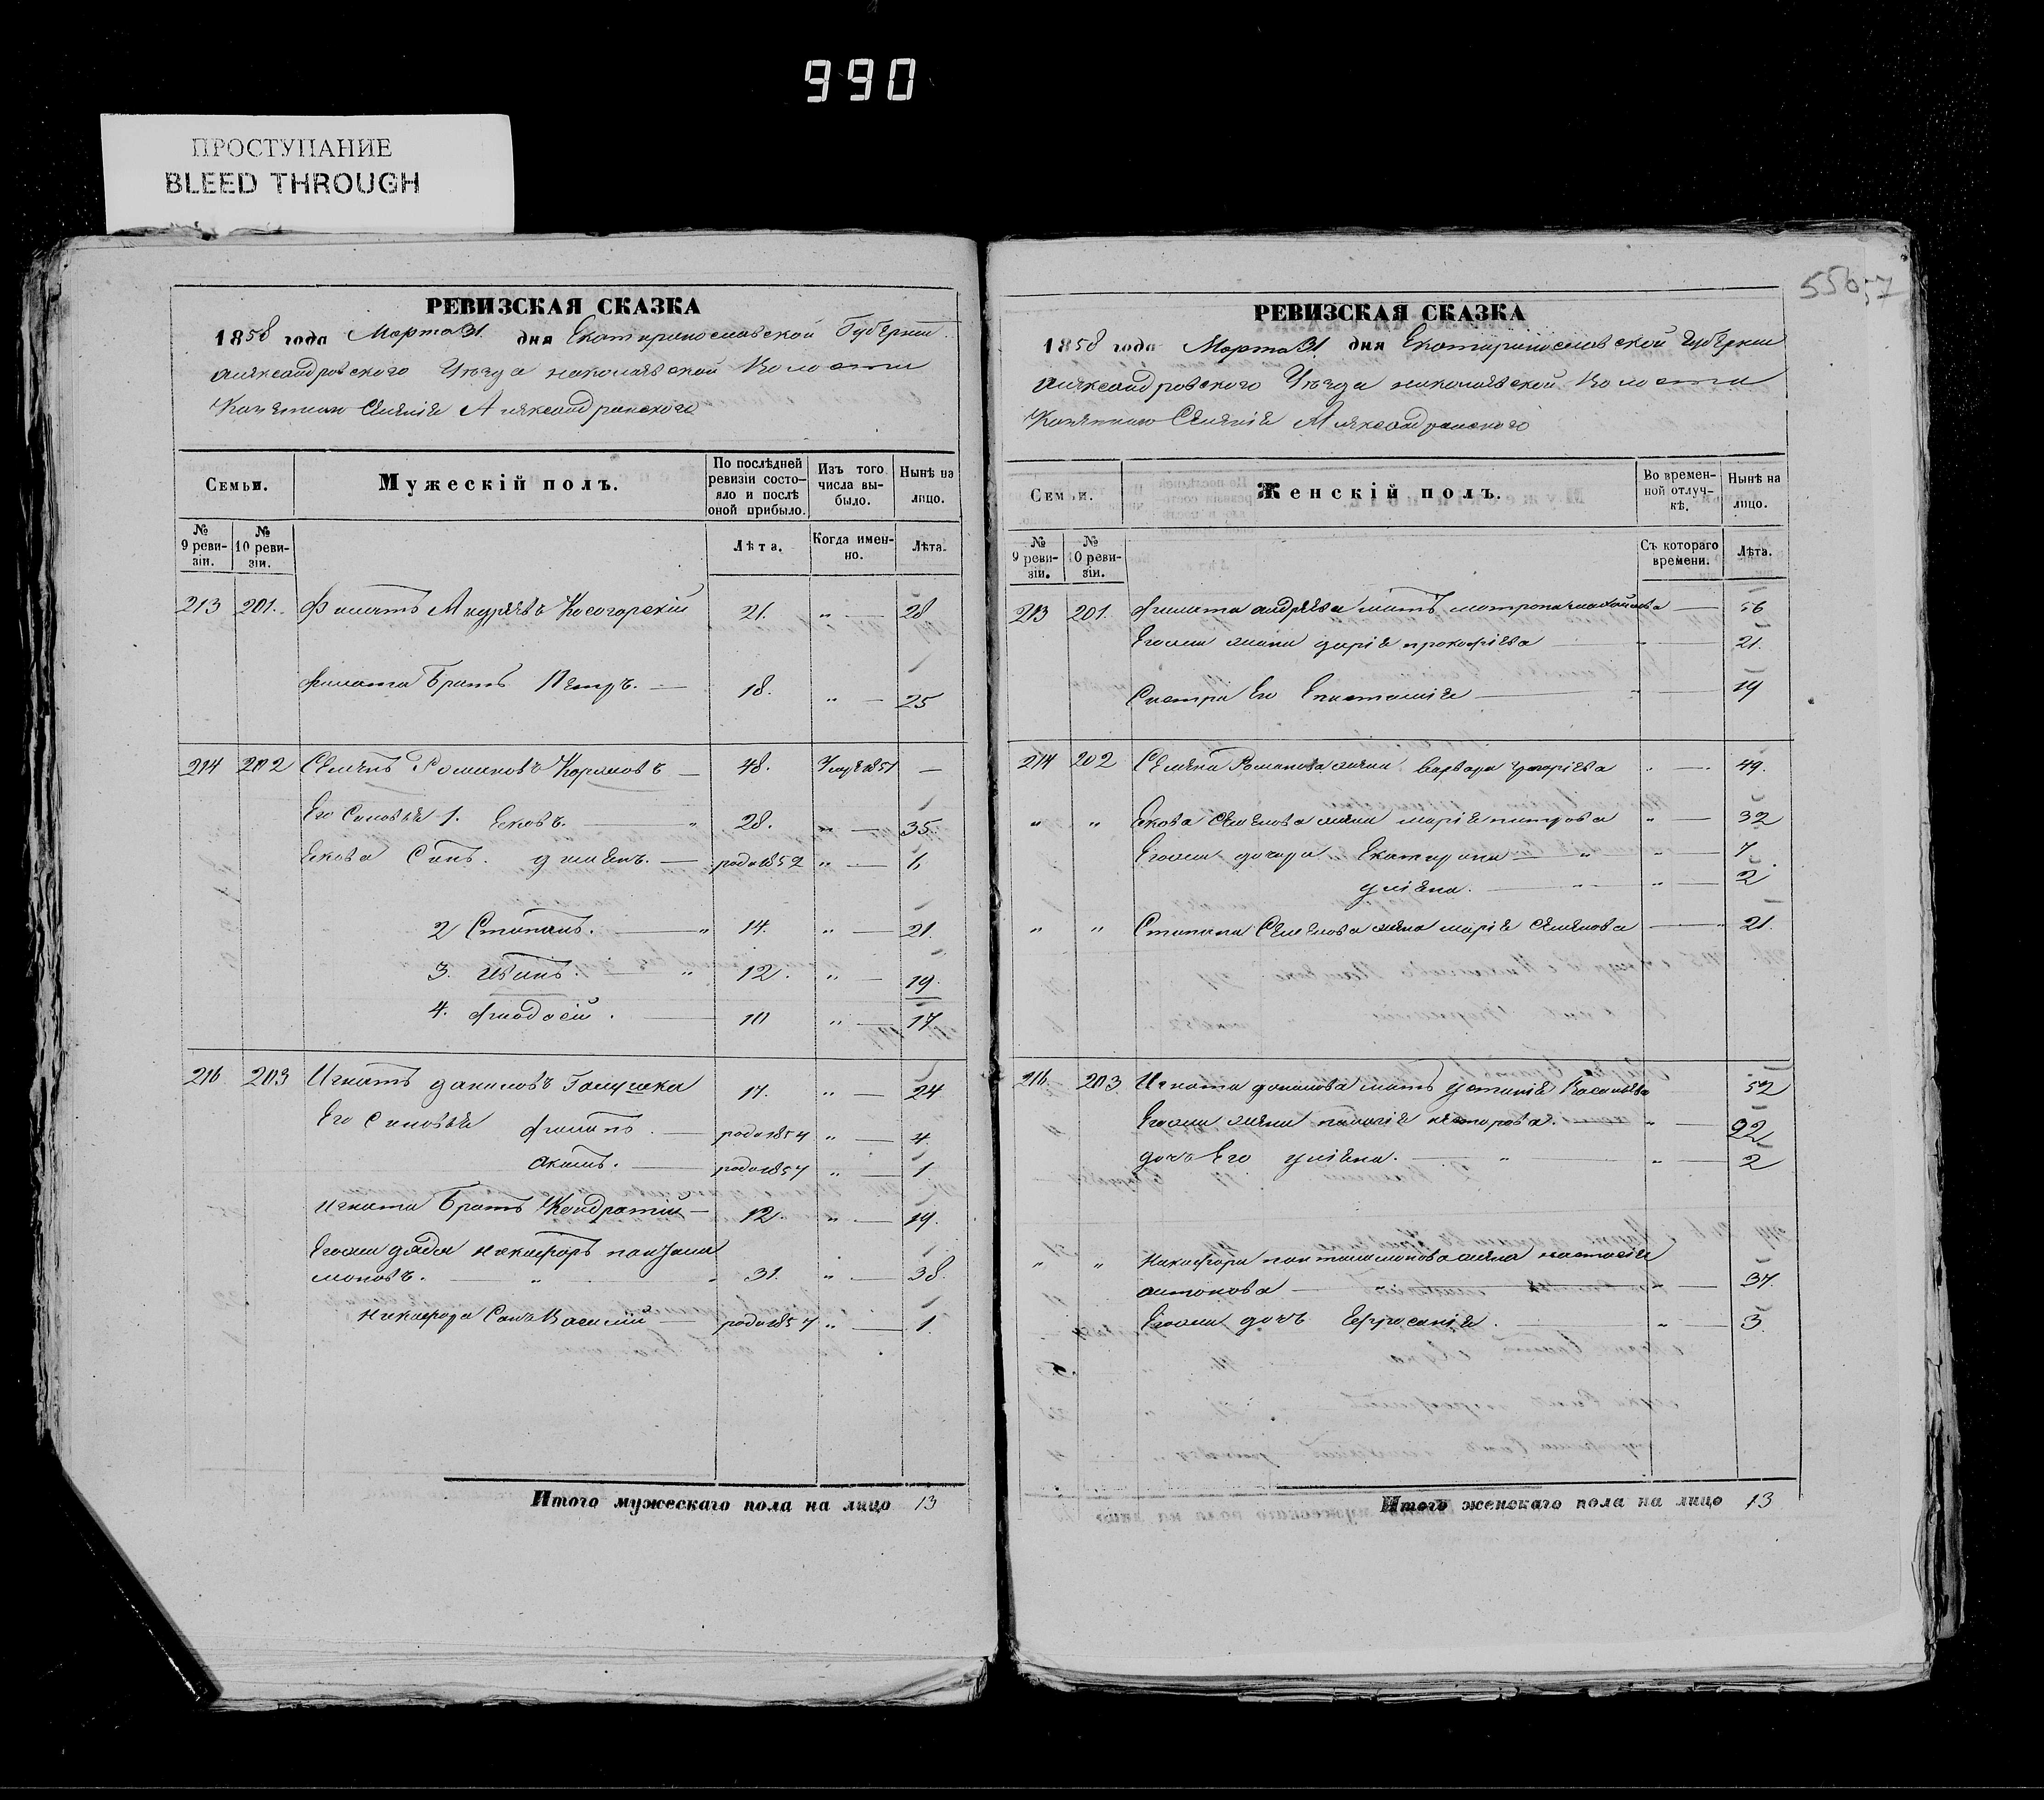 990
ПРОСТУПАНИЕ
BLEED THROUGH
РЕВИЗСКАЯ СКАЗКА
1858 года Марта 31 дня Екатеринославской Губернии
Александровского Уезда Николаевской Волости
Александровского
Семьи.
Мужескій полъ.
По послѣдней ревизіи состояло и послѣ оной прибыло.
Изъ того числа выбыло.
Нынѣ на лицо.
№ 9 ревизіи.
№ 10 ревизіи.
Лѣта.
Когда именно.
Лѣта.
213 201. Филатъ Андреевъ Косогорскій 21. „ — 28
Филата Братъ Петръ. — 18. „ — 25
214 202 Семенъ Романовъ — 48. —
Его Сыновья 1. Яковъ. „ 28. „ — 35
Якова Сынъ. — родо 1852 „ — 6
2 Степанъ. — „ 14. „ — 21.
3. Иванъ. — „ 12. „ — 19.
4. Феодосій. — 10 „ — 17
216 203 Игнатъ Даниловъ Галушка 17. „ — 24
Его Сыновья Филипъ. — родо 1854 „ — 4.
Акимъ. — родо 1857 „ — 1
Игната Братъ Кондратій — 12. „ — 19.
Егоже дядя Никифоръ
моновъ. — „ 31. „ — 38.
Никифора Сынъ Василій — родо 1857 „ — 1.
Итого мужескаго пола на лицо 13
556;7
РЕВИЗСКАЯ СКАЗКА
1858 года Марта 31 дня Екатеринославской Губернии
Александровского Уезда Николаевской Волости
Александровского
Семьи.
Женскій полъ.
Во временной отлучкѣ.
Нынѣ на лицо.
№ 9 ревизіи.
№ 10 ревизіи.
Съ котораго времени.
Лѣта.
213 201. Филата Андреева мать Матрона — 56
Егоже жена Дарія Прокофіева — „ 21.
Сестра Его — „ 19
214 202 Семена Романова жена Варвара Григоріева „ — 49.
„ „ Якова Семенова жена Марія Петрова „ — 32
Егоже дочери Екатерина — „ „ — 7
Уліяна. — „ „ — 2
„ „ Степана Семенова жена Марія Семенова — 21.
216. 203. Игната Данилова мать Устинія 52
Егоже жена Нестерова. „ — 22
дочь Его Уліяна. — „ „ — 2
„ „ Никифора Пантелимонова жена Настасія
Антонова — „ — 37.
Егоже дочь Ефросинія. — „ — 3.
Итого женскаго пола на лицо 13